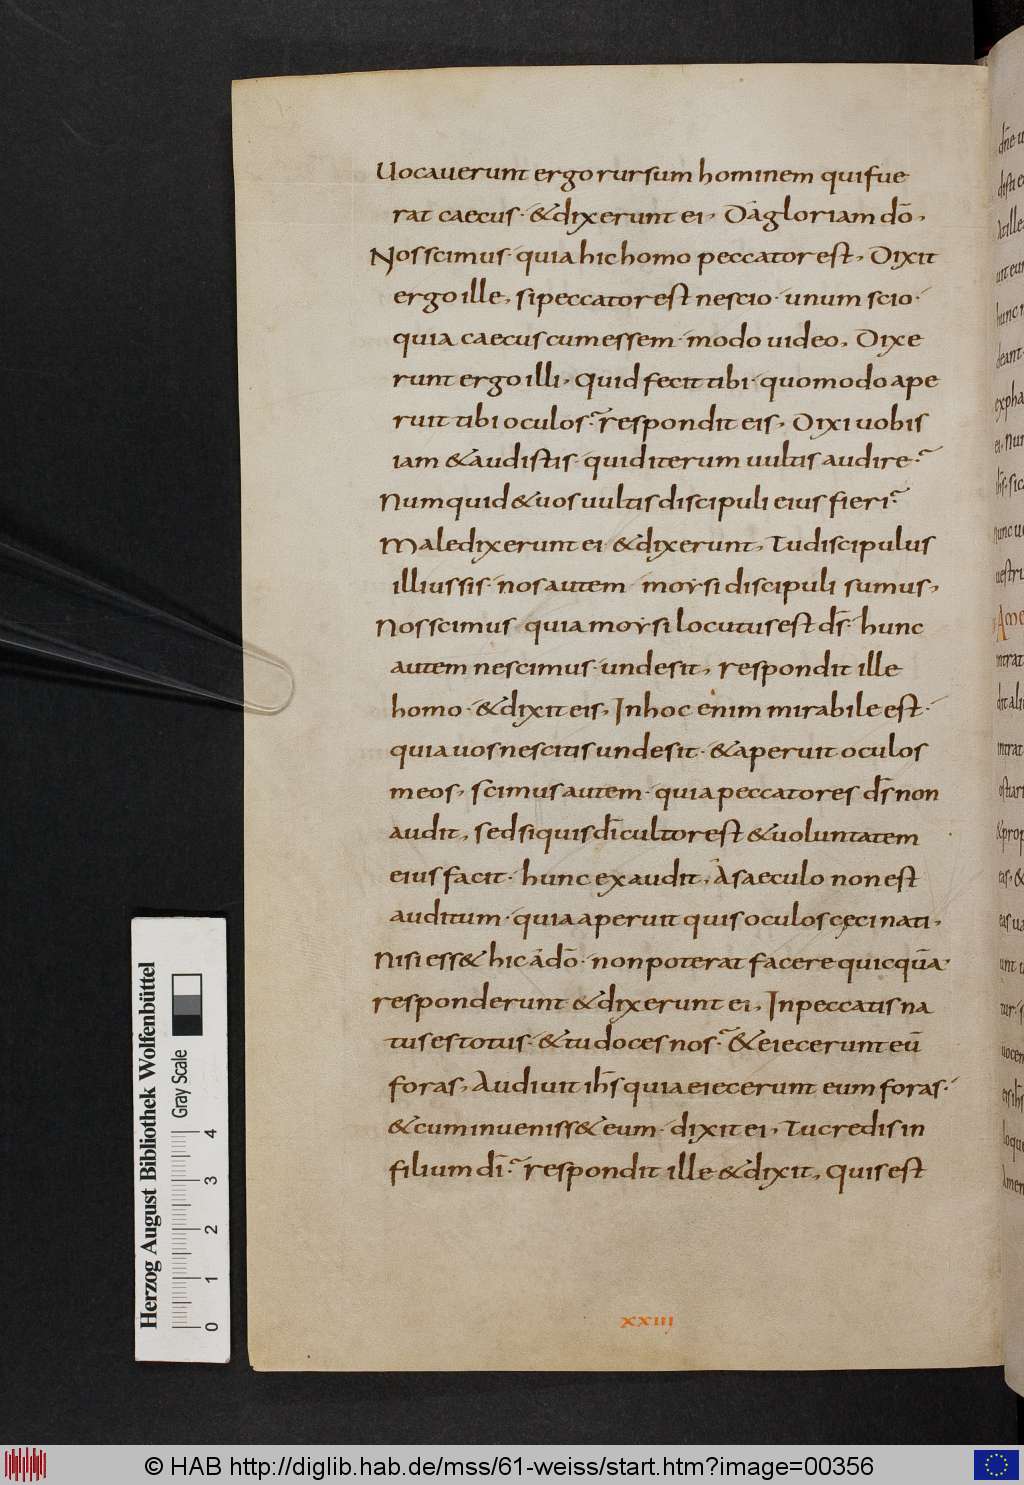 Uocauerunt ergo rursum hominem qui fue
rat caecus· &dixerunt ei, Dagloriam dō,
Nos scimus· quia hic homo peccator est, Dixit
ergo ille, si peccator est nescio· unum scio·
quia caecus cum essem· modo uideo, Dixe
runt ergo illi, Quid fecit tibi· quomodo ape
ruit tibi oculos? respondit eis, Dixi uobis
iam &audistis· quid iterum uultis audire?
Numquid &uos uultis discipuli eius fieri?
Maledixerunt ei· &dixerunt, Tu discipulus
illius sis· nos autem moysi discipuli sumus,
Nos scimus· quia moysi locutus est d̄s· hunc
autem nescimus· unde sit, respondit ille
homo· &dixit eis, In hoc enim mirabile est·
quia uos nescitis unde sit· &aperuit oculos
meos, scimus autem· quia peccatores d̄s non
audit, sed si quis d̄i cultor est &uoluntatem
eius facit· hunc exaudit, A saeculo non est
auditum· quia aperuit quis oculos cęci nati,
Nisi ess& hic a dō· non poterat facere quicquā·
responderunt &dixerunt ei, In peccatis na
tus es totus· &tu doces nos? &eiecerunt eū
foras, Audiuit ih̄s quia eiecerunt eum foras·
&cum inueniss& eum· dixit ei, Tu credis in
filium d̄i? respondit ille &dixit, quis est
xxiii
Herzog August Bibliothek Wolfenbüttel
Gray Scale
0 1 2 3 4
© HAB http://diglib.hab.de/mss/61-weiss/start.htm?image=00356